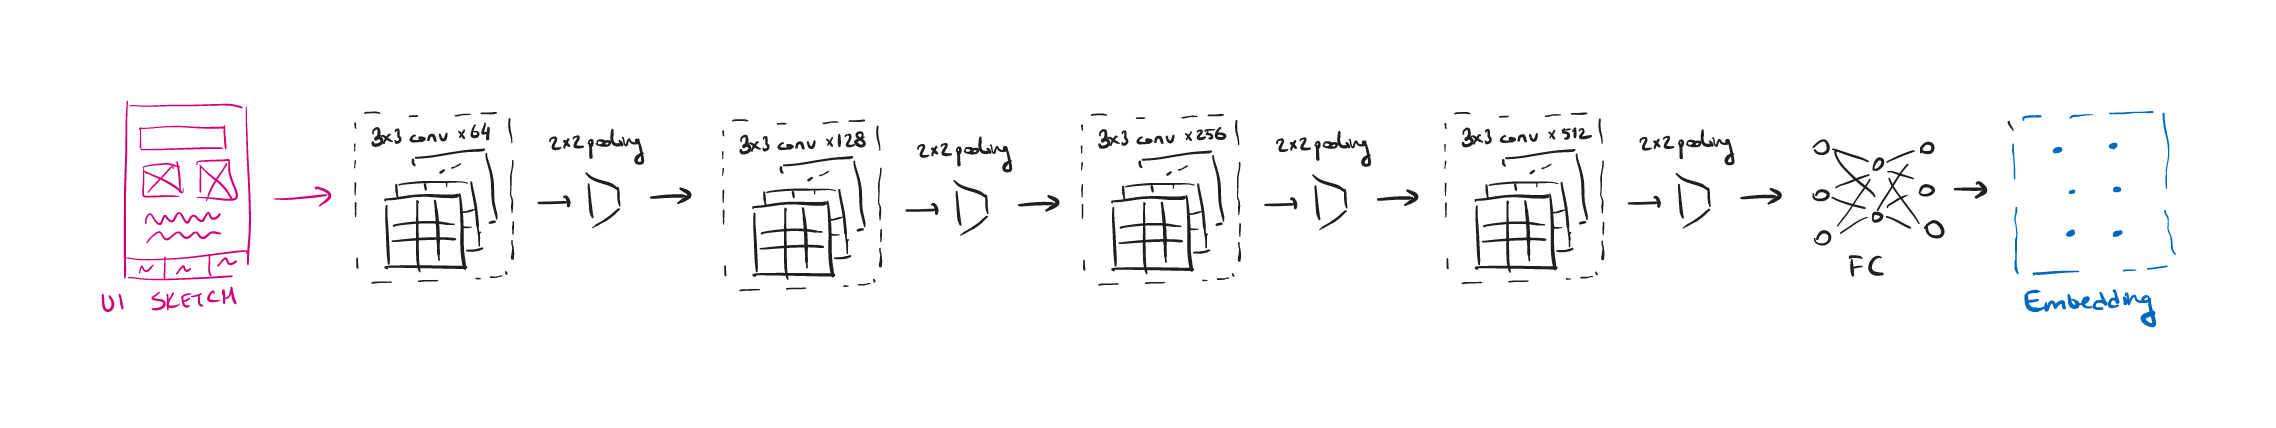 UI SKETCH
3x3 conv x64
2x2 pooling
3x3 conv x128
2x2 pooling
3x3 conv x256
2x2 pooling
3x3 conv x512
2x2 pooling
FC
Embedding